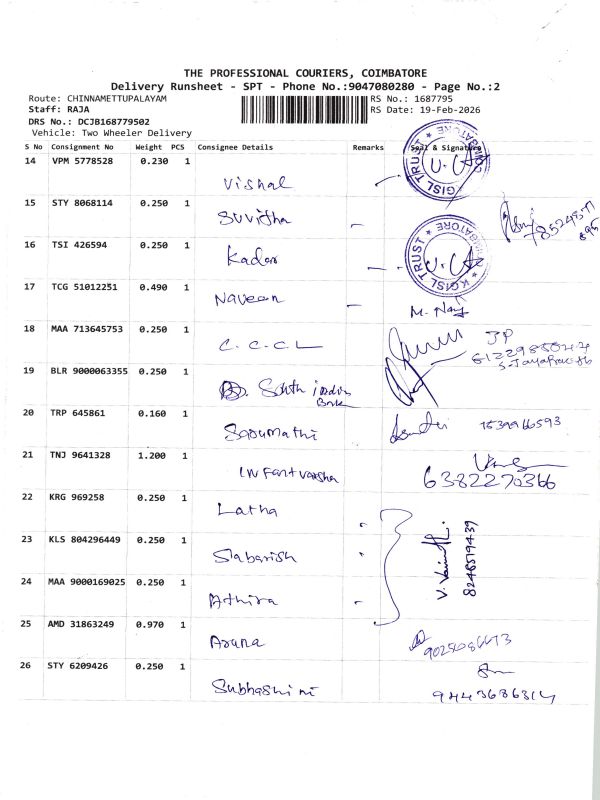 THE PROFESSIONAL COURIERS, COIMBATORE
Delivery Runsheet - SPT - Phone No.:9047080280 - Page No.:2
Route: CHINNAMETTUPALAYAM RS No.: 1687795
Staff: RAJA RS Date: 19-Feb-2026
DRS No.: DCJB168779502
Vehicle: Two Wheeler Delivery
S No Consignment No Weight PCS Consignee Details Remarks Seal & Signature
14 VPM 5778528 0.230 1
Vishal
KGISL TRUST COIMBATORE
15 STY 8068114 0.250 1
Suvitha
16 TSI 426594 0.250 1
Kader
KGISL TRUST COIMBATORE
17 TCG 51012251 0.490 1
Naveen
18 MAA 713645753 0.250 1
C.C.C.L
JP
19 BLR 9000063355 0.250 1
South indian
Bank
20 TRP 645861 0.160 1
Sapumathi
21 TNJ 9641328 1.200 1
infant varsha
6382270366
22 KRG 969258 0.250 1
Latha
23 KLS 804296449 0.250 1
Sabarish
8248519439
24 MAA 9000169025 0.250 1
Athira
25 AMD 31863249 0.970 1
Aruna
26 STY 6209426 0.250 1
Subhashini
9443686314